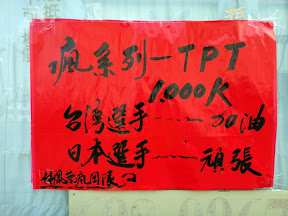 瘋系列一TPT
1000K
台湾選手----加油
日本選手----頑張